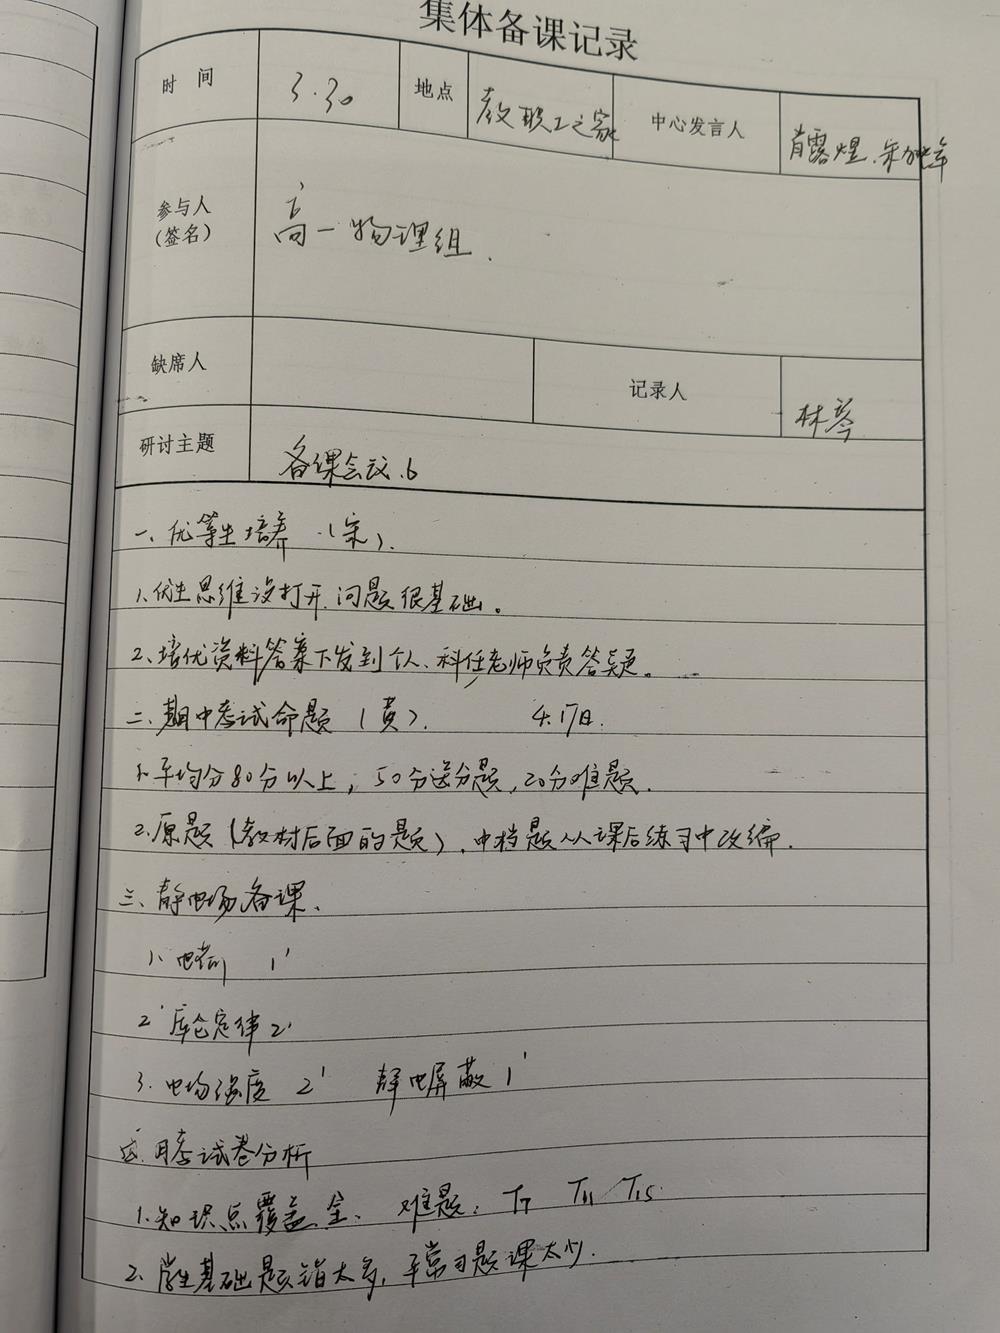 集体备课记录
时 间 3.30 地点 教职工之家 中心发言人 肖露煌、宋
参与人 高一物理组.
(签名)
缺席人 记录人 林琴
研讨主题 备课会议.6
一、优等生培养 (宋).
1、优生思维没打开,问题很基础。
2、培优资料答案下发到个人、科任老师负责答疑。
二、期中考试命题 (黄). 4.17日.
1、平均分80分以上,50分送分题,20分难题.
2.原题(教材后面的题),中档题从课后练习中改编.
三、静电场备课、
1、电荷 1'
2' 库仑定律 2'
3. 电场强度 2' 静电屏蔽 1'
四.月考试卷分析
1.知识点覆盖全、难题:T7 T11 T15.
2、学生基础题错太多,平常习题课太少.